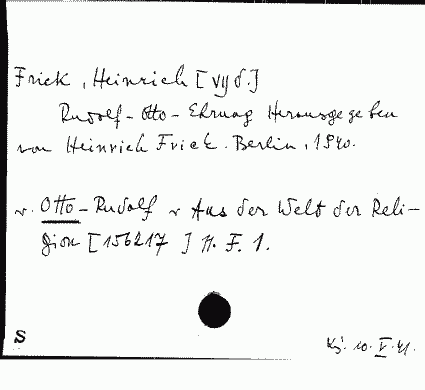 Frick, Heinrich [vyd.]
Rudolf-Otto-Ehrung Herausgegeben
von Heinrich Frick. Berlin, 1940.
v. Otto-Rudolf v Aus der Welt der Reli-
gion [156217] N. F. 1.
S
Kj. 10. V. 41.